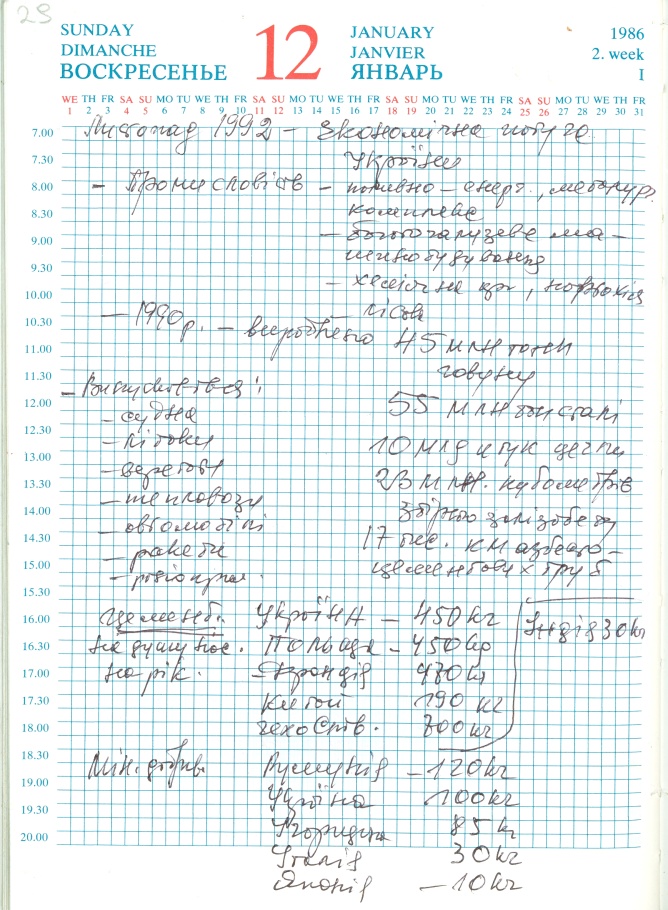 29
SUNDAY
DIMANCHE
ВОСКРЕСЕНЬЕ
12
JANUARY
JANVIER
ЯНВАРЬ
1986
2. week
I
WE TH FR SA SU MO TU WE TH FR SA SU MO TU WE TH FR SA SU MO TU WE TH FR SA SU MO TU WE TH FR
1 2 3 4 5 6 7 8 9 10 11 12 13 14 15 16 17 18 19 20 21 22 23 24 25 26 27 28 29 30 31
7.00 Листопад 1992 – Економічна потуга
7.30 України
8.00 – Промисловість – паливно – енерг., металур.
8.30 комплекс
9.00 – багатогалузеве ма–
9.30 шинобудування
– хімічна пр
10.00 – лісова
10.30 – 1990 р. – вироблено 45 млн тонн
11.00 чавуну
11.30 – Випускається:
12.00 – судна 55 млн тон сталі
12.30 – літаки 10 млд штук цегли
13.00 – верстати 23 млн. кубометрів
13.30 – тепловози збірного залізобету
14.00 – автомобілі 17 тис. км азбесто–
14.30 – ракети цементових труб
15.00
15.30
16.00 цемент. Україна – 450 кг Індія 30 кг
16.30 на душу нас. Польща – 450 кг
17.00 на рік. – Франція 470 кг
17.30 Китай 190 кг
18.00 чехоСлов. 700 кг
18.30 Мін. добрив. Румунія – 120 кг
19.00 Україна 100 кг
19.30 Угорщина 85 кг
20.00 Італія 30 кг
Японія – 10 кг